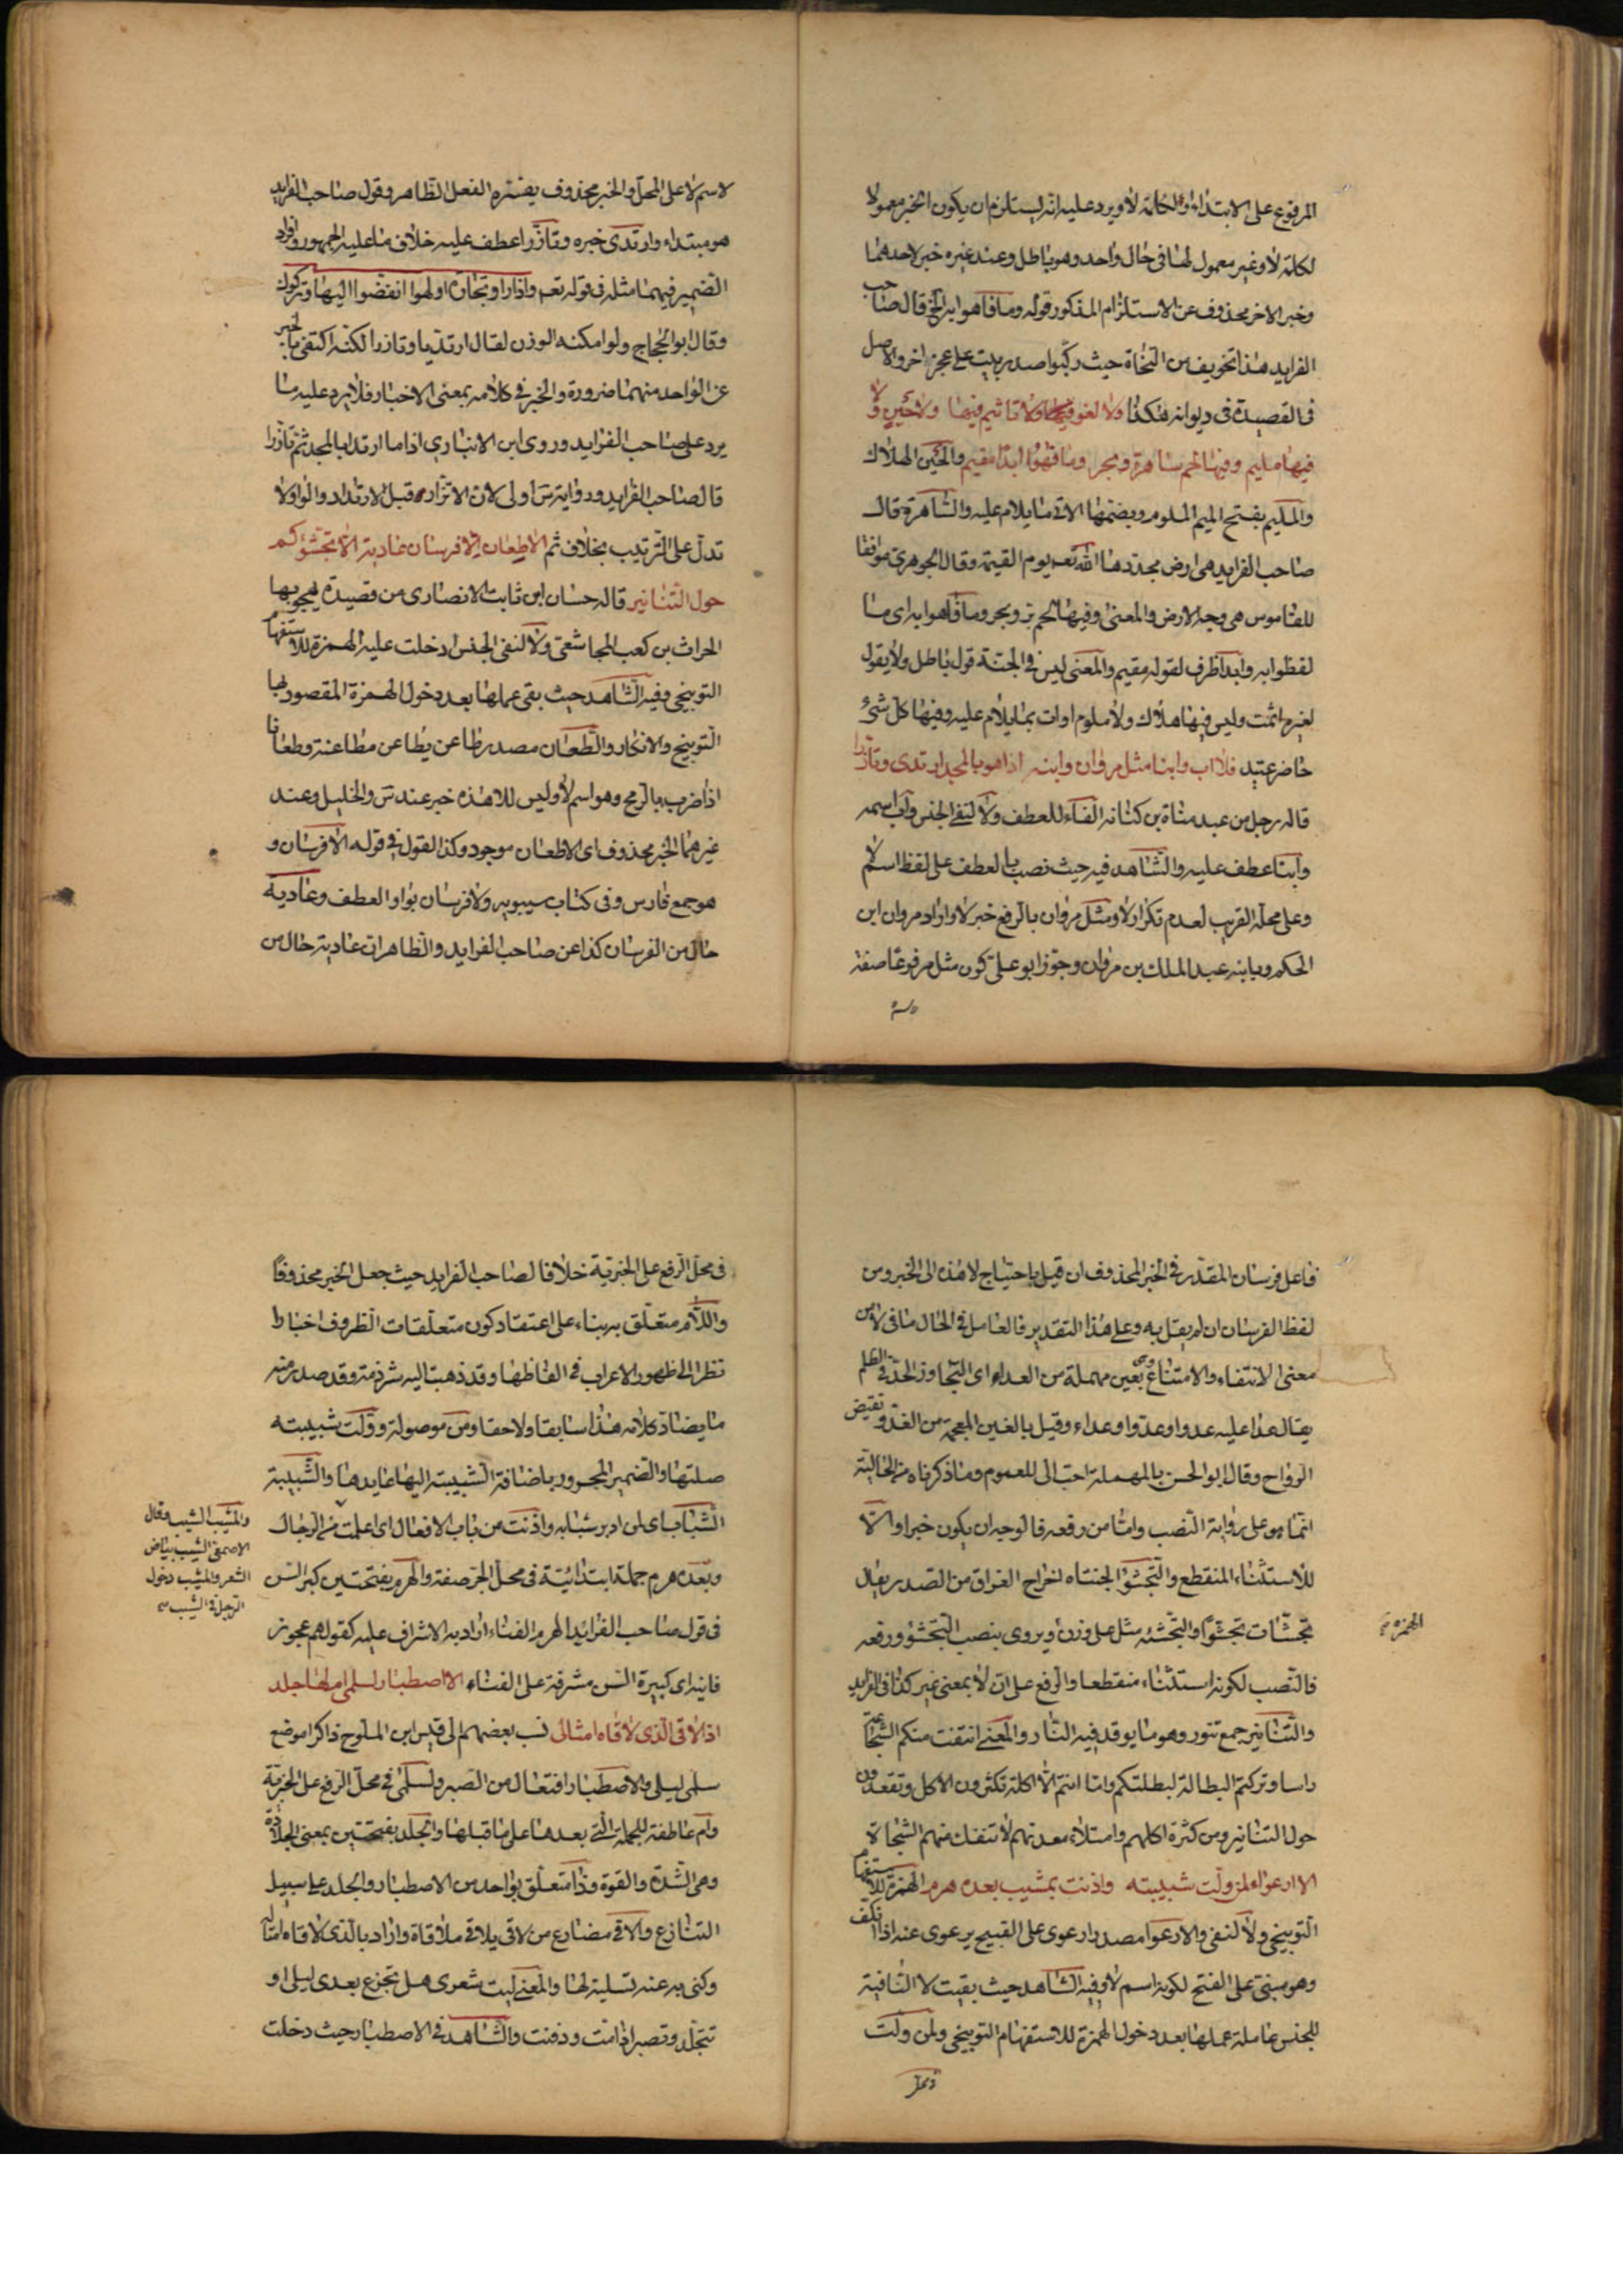 المرفوع على الابتداء او الخاتمة لا ويرد عليه انه يستلزم ان يكون الخبر معمولا
لكلمة لا وغير معمول لها في حال واحد وهو باطل وعند غيره خبر لاحدهما
وخبر الاخر محذوف عن الاستلزام المذكور قوله وما فاهوا به الخ قال صاحب
الفرايد هذا تخويف من النحاة حيث ركبوا صدر بيت على عجز اخر والاصل
في القصيدة في ديوانه هكذا ولا لغو فيها ولا تاثيم فيها ولا حين ولا
فيها مليم وفيها لحم ساهرة وبحر وما فاهوا ابدا مقيم والحين الهلاك
والمليم بفتح الميم الملوم وبضمها الاتي ما يلام عليه والساهرة قال
صاحب الفرايد هي ارض يجددها الله تعه يوم القيمة وقال الجوهري موافقا
للقاموس هي وجه الارض والمعنى وفيها لحم بر وبحر وما فاهوا به اى ما
لفظوا به وابدا ظرف لقوله مقيم والمعنى ليس في الجنة قول باطل ولا يقول
لغيره اثمت وليس فيها هلاك ولا ملوم اوات بما يلام عليه وفيها كل شئ
حاضر عتيد فلا اب وابنا مثل مروان وابنه اذا هو بالمجد ارتدى وتازرا
قاله رجل من عبد مناة بن كنانه الفاء للعطف ولا لنفي الجنس واب اسمه
وابنا عطف عليه والشاهد فيه حيث نصب بالعطف على لفظ اسم لا
وعلى محله القريب لعدم تكرار لا ومثل مروان بالرفع خبر لا واراد مروان ابن
الحكم وبابنه عبد الملك بن مروان وجوز ابو على كون مثل مرفوعا صفة
لاسم لا على المحل والخبر محذوف يفسره الفعل الظاهر وقول صاحب الفرايد
هو مبتداء وارتدى خبره وتازرا عطف عليه خلاف ما عليه الجمهور وافراد
الضمير فيهما مثله في قوله تعه واذا راوا تجارة او لهوا انفضوا اليها وتركوك
وقال ابو الحجاج ولو امكنه الوزن لقال ارتديا وتازرا لكنه اكتفى بالخبر
عن الواحد منهما ضرورة والخبر في كلامه بمعنى الاخبار فلا يرد عليه ما
يرد على صاحب الفرايد وروى ابن الانبارى اذا ما ارتدا بالمجد ثم تازرا
قال صاحب الفرايد وروايته س اولى لان الاتزار قبل الارتداد والواو لا
تدل على الترتيب بخلاف ثم الا طعان الا فرسان عادية الا تجشؤكم
حول التنانير قاله حسان ابن ثابت الانصارى من قصيدة يهجو بها
الحراث بن كعب المجاشعى ولا لنفى الجنس ادخلت عليه الهمزة للاستفهام
التوبيخى وفيه الشاهد حيث بقى عملها بعد دخول الهمزة المقصود بها
التوبيخ والانكار والطعان مصدر طاعن يطاعن مطاعنة وطعانا
اذا ضرب بالرمح وهو اسم لا وليس للا هذه خبر عند س والخليل وعند
غيرهما الخبر محذوف اى الا طعان موجود وكذا القول في قوله الا فرسان و
هو جمع فارس وفى كتاب سيبويه ولا فرسان بواو العطف وعادية
حال من الفرسان كذا عن صاحب الفرايد والظاهر ان عادية حال من
فاعل فرسان المقدر في الخبر المحذوف ان قيل باحتياج لا هذه الى الخبر ومن
لفظ الفرسان ان لم يقل به وعلى هذا التقدير فالعامل في الحال ما في لا من
معنى الانتفاء والامتناع وهى بعين مهملة من العداء اى التجاوز الحد في الظلم
يقال عدا عليه عدوا وعدوا وعداء وقيل بالغين المعجمة من الغدو نقيض
الرواح وقال ابو الحسن بالمهملة احب الى للعموم وما ذكرناه من الحالية
انما هو على رواية النصب وامامن رفعه فالوجه ان يكون خبرا والا
للاستثناء المنقطع والتجشؤ الجنتاه اخراج الغراق من الصدر يقال
تجشات تجشؤا والتجشئه مثل على وزن ويروى بنصب التجشؤ ورفعه
الهمزه
فالنصب لكونه استثناء منقطعا والرفع على ان لا بمعنى غير كذا في الفرايد
والتنانير جمع تنور وهو ما يوقد فيه النار والمعنى انتفت منكم الشجاعة
راسا وتركتم البطالة لبطلتكم واما انتم الا اكلة تكثرون الاكل وتقعدون
حول التنانير ومن كثرة اكلهم وامتلاء معدتهم لا تنفك منهم الشجاة
الا ارعواء لمن ولت شبيبته واذنت بمشيب بعده هرم الهمزة للاستفهام
التوبيخى ولا لنفى والارعوا مصدر ارعوى على القبيح يرعوى عنه اذا انكف
وهو مبنى على الفتح لكونه اسم لا وفيه الشاهد حيث بقيت لا النافية
للجنس عاملة عملها بعد دخول الهمزة للاستفهام التوبيخى ولمن ولت
فى محل
فى محل الرفع على الخبرية خلافا لصاحب الفرايد حيث جعل الخبر محذوفا
واللام متعلق به بناء على اعتقاد كون متعلقات الظروف اخبارا
نظرا الى ظهور الاعراب في الفاظها وقد ذهبت اليه شرذمة وقد صدر منه
ما يضاد كلامه هذا سابقا ولاحقا ومن موصولة وولت شبيبته
صلتها والضمير المجرور باضافة الشبيبة اليها عايدها والشبيبة
الشباب اى لمن ادبر شبابه واذنت من باب الافعال اى اعلمت من الرجال
وبعده هرم جملة ابتدائية في محل الجر صفة والهرم بفتحتين كبر السن
والمشيب الشيب وقال
الاصمعى الشيب بياض
الشعر والمشيب دخول
الرجل في الشيب
فى قول صاحب الفرائد الهرم الفناء اراد به الاشراف عليه كقولهم عجوز
فانية اى كبيرة السن مشرفة على الفناء الا اصطبار لسلمى ام لها جلد
اذا لاقى الذى لاقاه امثالى نسب بعضهم الى قيس ابن الملوح ذاكرا موضع
سلمى ليلى والاصطبار افتعال من الصبر ولسلمى فى محل الرفع على الخبرية
وام عاطفة للجملة التى بعدها على ما قبلها والجلد بفتحتين بمعنى الجلادة
وهى الشدة والقوة وذا متعلق بواحد من الاصطبار والجلد على سبيل
التنازع والاقى مضارع من لاقى يلاقى ملاقاة واراد بالذى لاقاه امثاله
وكنى به عنه تسلية لها والمعنى ليت شعرى هل تجزع بعدى ليلى او
تتجلد وتصبر اذا مت ودفنت والشاهد في الاصطبار حيث دخلت